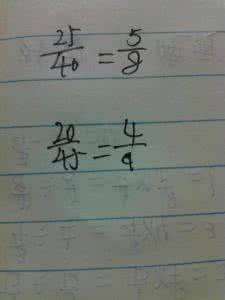 25/40 = 5/8
20/45 = 4/9